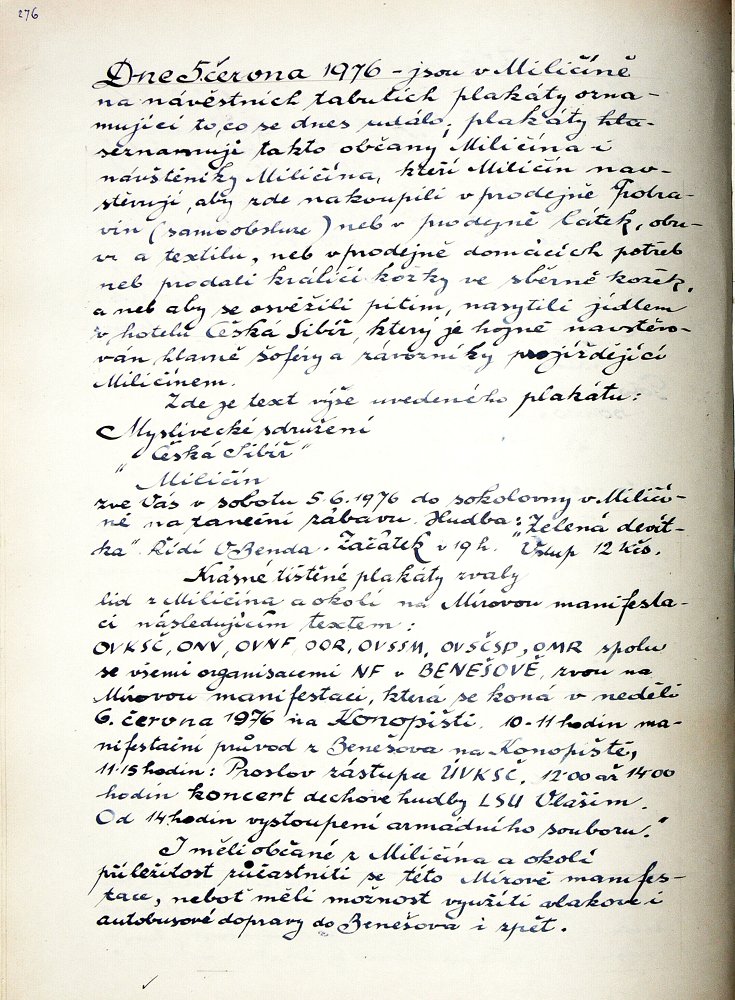 276
Dne 5. června 1976 - jsou v Miličíně
na návěstních tabulích plakáty ozna-
mující to, co se dnes událo; plakáty hla-
seznamují takto občany Miličína i
návštěníky Miličína, kteří Miličín nav-
stěvují, aby zde nakoupili v prodejně Potra-
vin (samoobsluze) neb v prodejně látek, obu-
vi a textilu, neb v prodejně domácích potřeb
neb prodali králičí kožky ve sběrně kožek,
a neb aby se osvěžili pitím, nasytili jídlem
v hotelu Česká Sibiř, který je hojně navštěvo-
ván, hlavně šoféry a závozníky projíždějící
Miličínem.
Zde je text výše uvedeného plakátu:
Myslivecké sdružení
"Česká Sibiř"
Miličín
zve Vás v sobotu 5.6.1976 do sokolovny v Miličí-
ně na taneční zábavu. Hudba: "Zelená devít-
ka". Řídí V. Benda. Začátek v 19 h. Vstup 12 Kčs.
Krásné tištěné plakáty zvaly
lid z Miličína a okolí na Mírovou manifesta-
ci následujícím textem:
OVKSČ, ONV, OVNF, OOR, OVSSM, OVSČSP, OMR spolu
se všemi organisacemi NF v BENEŠOVĚ, zvou na
Mírovou manifestaci, která se koná v neděli
6. června 1976 na Konopišti. 10-11 hodin ma-
nifestační průvod z Benešova na Konopiště,
11·15 hodin: Proslov zástupce ÚVKSČ. 12·00 až 14·00
hodin koncert dechové hudby LSU Vlašim.
Od 14 hodin vystoupení armádního souboru."
I měli občané z Miličína a okolí
příležitost zúčastniti se této Mírové manifes-
tace, neboť měli možnost využíti vlakové i
autobusové dopravy do Benešova i zpět.